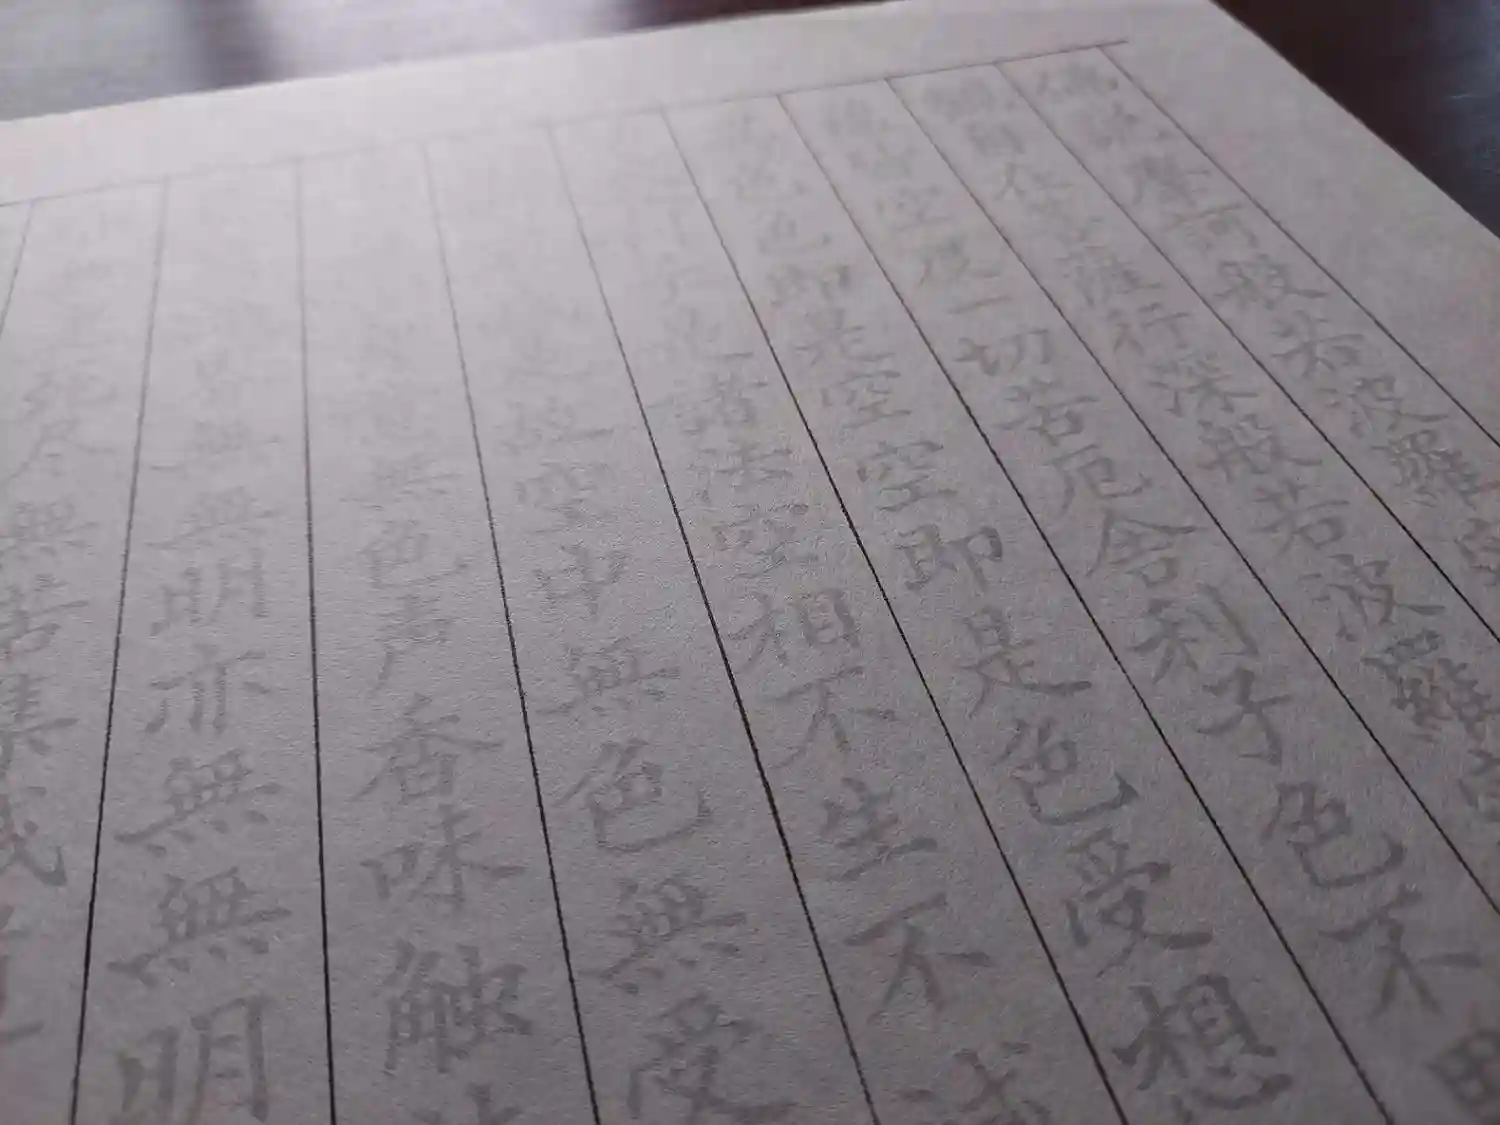 仏説摩訶般若波羅
観自在菩薩行深般若波羅
蘊皆空度一切苦厄舎利子色不異
異色色即是空空即是色受想
是諸法空相不生不滅
是故空中無色無受
無色声香味触法
無無明亦無無明
死尽無苦集滅道